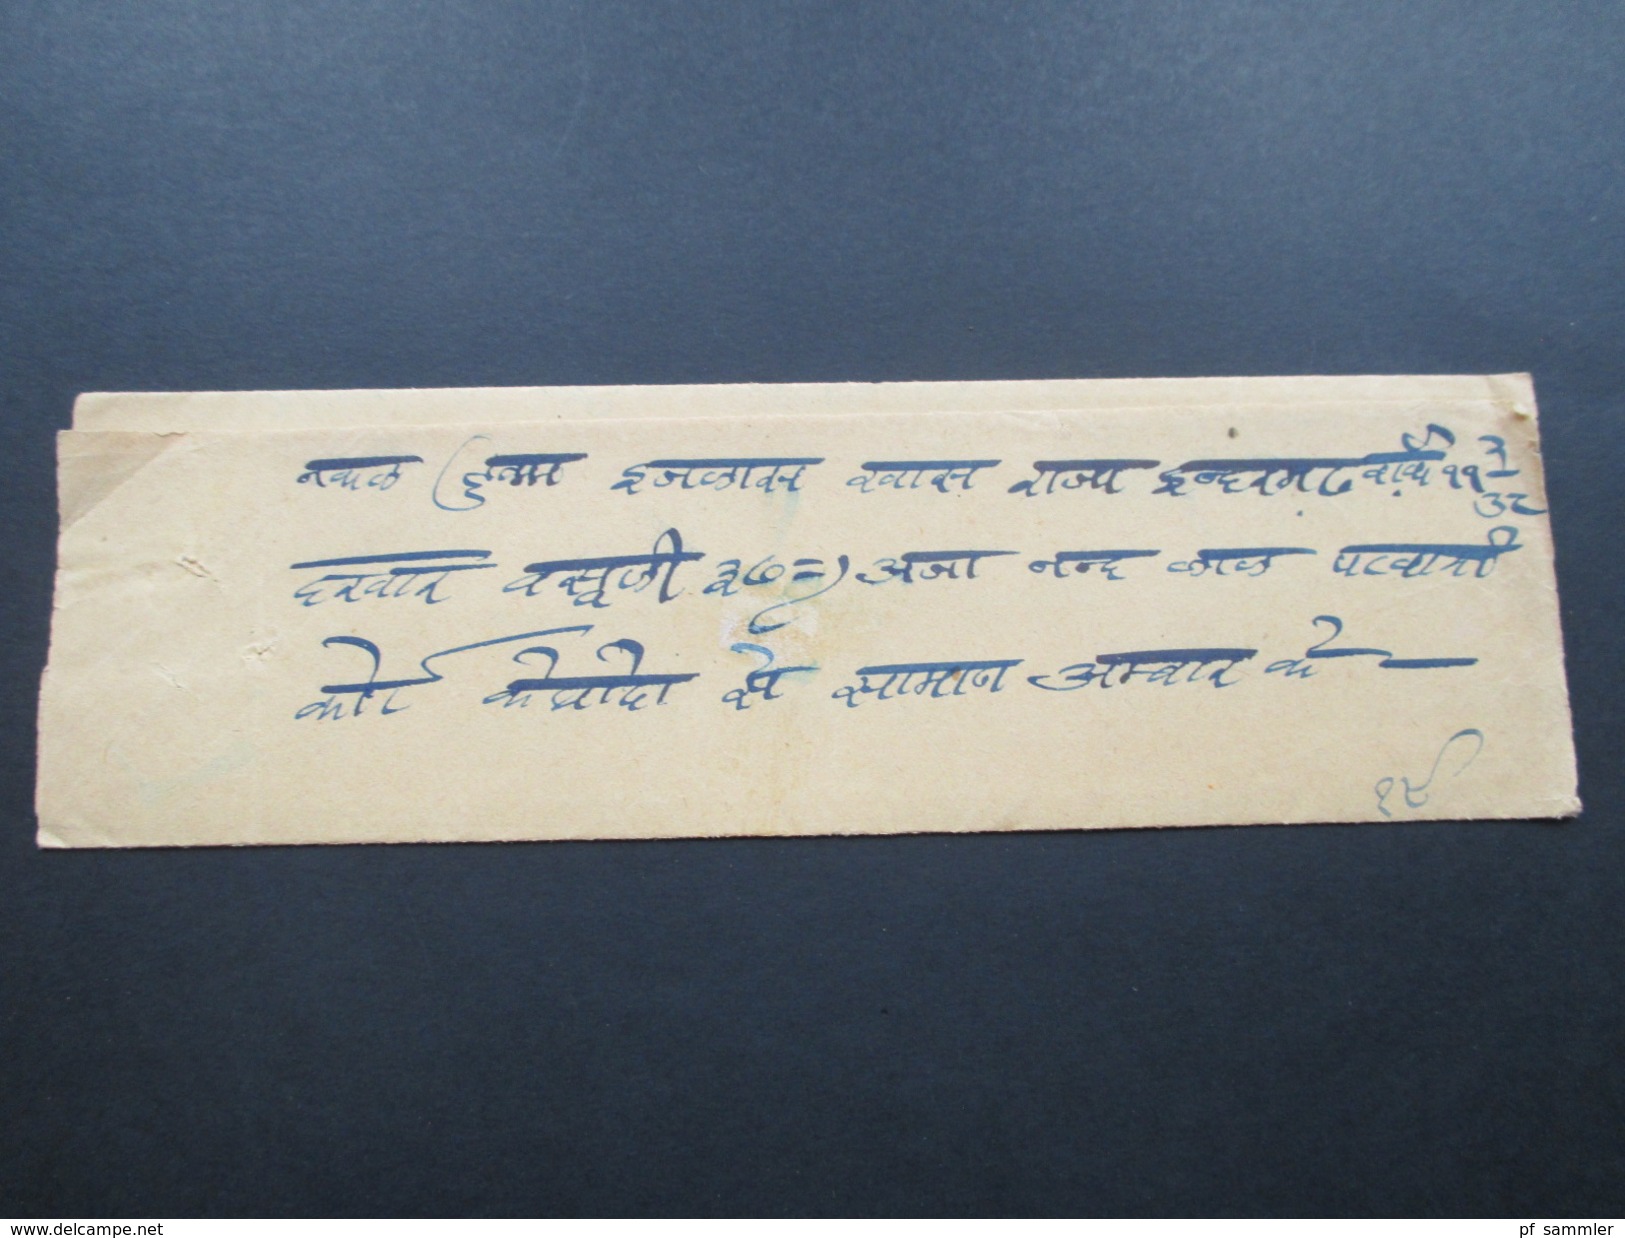 नकल हुकम इजलास खास राज्य इन्दरगढ वाके ११ ३/३८
दरबार वसूली ३७=) अजा नन्द लाल पटवारी
कोर्ट से सामान अम्बार के
१९
www.delcampe.net
pf_sammler